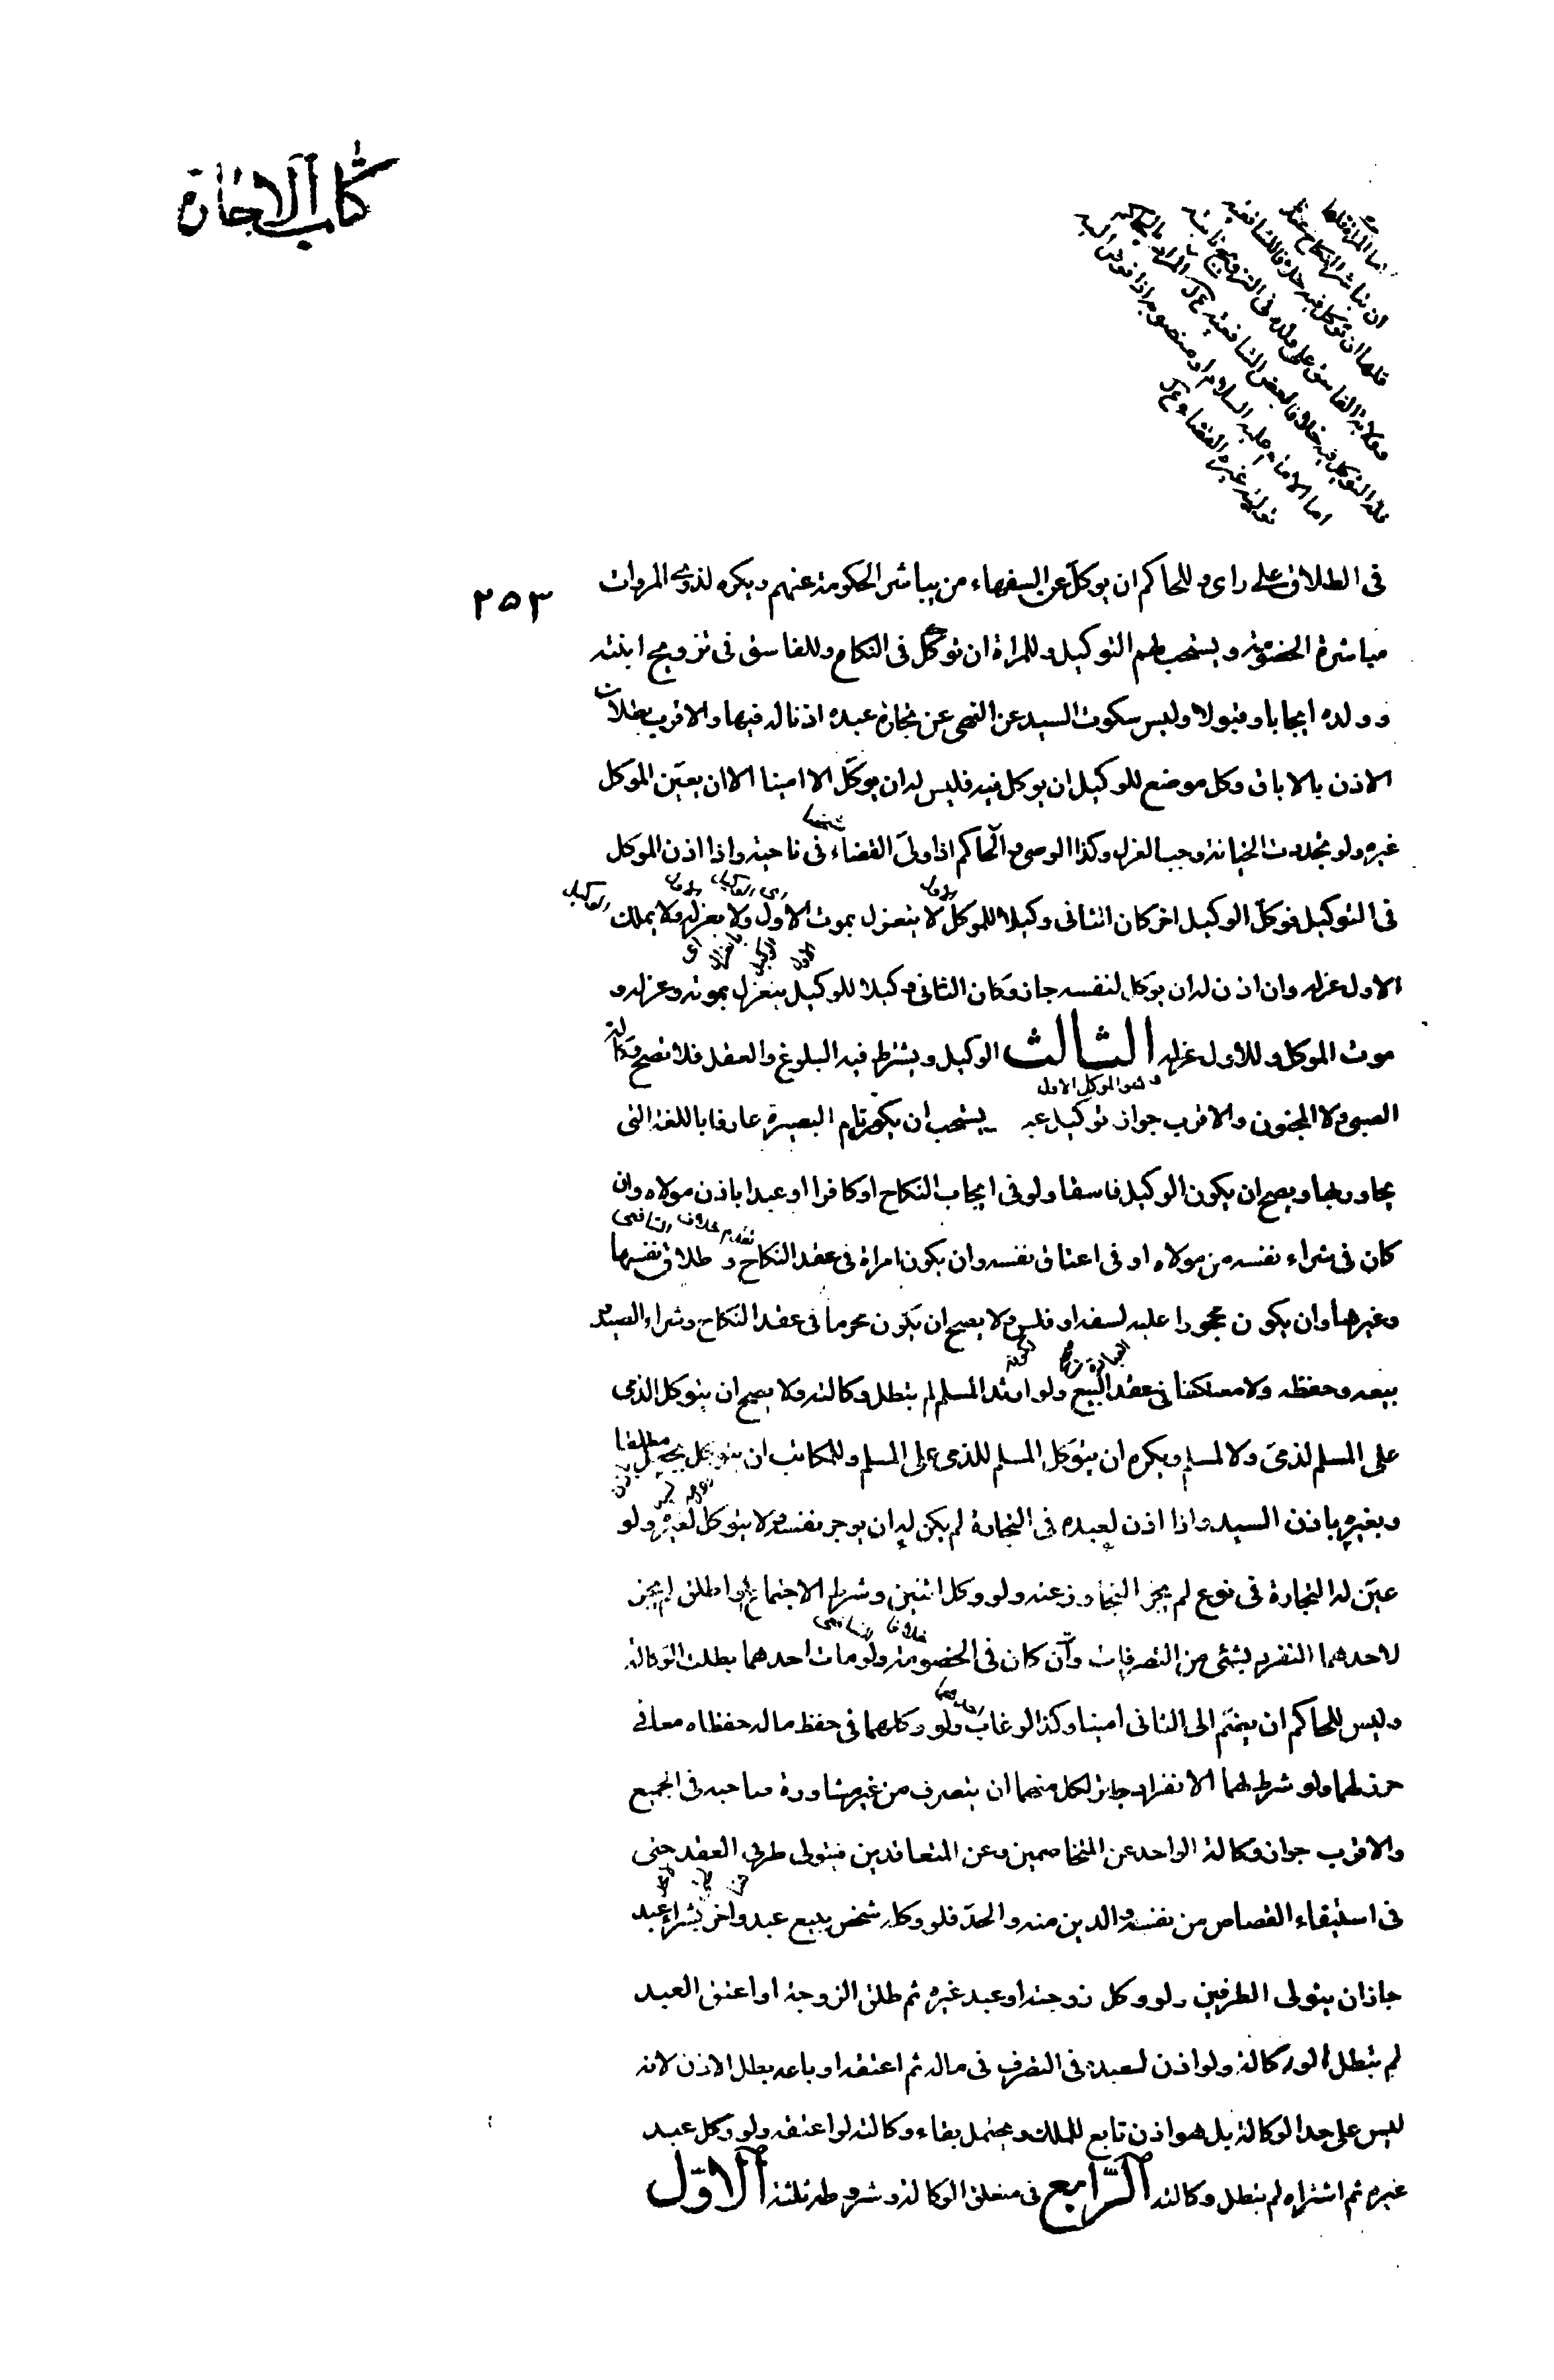 كتاب الاجارة
اما المراة فلها
ان تباشر النكاح عندنا
فلها ان توكل فيه خلافا للشافعية
وولاية الفاسق على ولده في التزويج ثابتة
فله التوكيل فيه خلافا لبعض الشافعية
اما الامام عليه السلام او منصوبه اذا فوض اليه
تولية غيره القضاء
٢٥٣
في الطلاق على راى وللحاكم ان يوكل عن السفهاء من يباشر الحكومة عنهم ويكره لذوى المروات
مباشرة الخصومة ويستحب لهم التوكيل وللمراة ان توكل في النكاح وللفاسق في تزويج ابنته
وولده ايجابا وقبولا وليس سكوت السيد عن النهى عن تجارة عبده اذنا له فيها والاقرب بطلان
الاذن بالاباق وكل موضع للوكيل ان يوكل فيه فليس له ان يوكل الا امينا الا ان يعين الموكل
غيره ولو تجددت الخيانة وجب العزل وكذا الوصى والحاكم اذا ولى القضاء في ناحية واذا اذن الموكل
في التوكيل فوكل الوكيل اخر كان الثانى وكيلا للموكل لا ينعزل بموت الاول ولا بعزله ولا يملك
الاول عزله وان اذن له ان يوكل لنفسه جاز وكان الثانى وكيلا للوكيل ينعزل بموته وعزله و
موت الموكل وللاول عزله الثالث الوكيل ويشترط فيه البلوغ والعقل فلا تصح وكالة
وهو الموكل الاول
الصبى ولا المجنون والاقرب جواز توكيل عبد يستحب ان يكون تام البصيرة عارفا باللغة التى
يحاور بها ويصح ان يكون الوكيل فاسقا ولو في ايجاب النكاح او كافرا او عبدا باذن مولاه وان
تقدم خلاف الشافعى
كان في شراء نفسه من مولاه او في اعتاق نفسه وان يكون امراة في عقد النكاح وطلاق نفسها
وغيرها وان يكون محجورا عليه لسفه او فلس ولا يصح ان يكون محرما في عقد النكاح وشراء الصيد
بيعه وحفظه ولا معتكفا في عقد البيع ولو ارتد المسلم لم تبطل وكالته ولا يصح ان يتوكل الذمى
على المسلم لذمى ولا لمسلم ويكره ان يتوكل المسلم للذمى على المسلم وللمكاتب ان يتوكل بجعل مطلقا
وبغيره باذن السيد واذا اذن لعبده في التجارة لم يكن له ان يوجر نفسه ولا يتوكل لغيره ولو
عين له التجارة في نوع لم يجز التجاوز عنه ولو وكل اثنين وشرط الاجتماع او اطلق لم يجز
خلافا للشافعى
لاحدهما التفرد بشئ من التصرفات وان كان في الخصومة ولو مات احدهما بطلت الوكالة
وليس للحاكم ان يضم الى الثانى امينا وكذا لو غاب احدهما ولو وكلهما في حفظ ماله حفظاه معا في
حرز لهما ولو شرط لهما الانفراد جاز لكل منهما ان يتصرف من غير مشاورة صاحبه في الجميع
والاقرب جواز وكالة الواحد عن المتخاصمين وعن المتعاقدين فيتولى طرفى العقد حتى
في استيفاء القصاص من نفسه والدين منه والحد فلو وكله شخص ببيع عبد واخر بشراء عبد
جاز ان يتولى الطرفين ولو وكل زوجته او عبد غيره ثم طلق الزوجة او اعتق العبد
لم تبطل الوكالة ولو اذن لعبده في التصرف في ماله ثم اعتقه او باعه بطل الاذن لانه
ليس على حد الوكالة بل هو اذن تابع للملك ويحتمل بقاء وكالته لو اعتقه ولو وكل عبد
غيره ثم اشتراه لم تبطل وكالته الرابع في متعلق الوكالة وشروطه ثلثة الاول